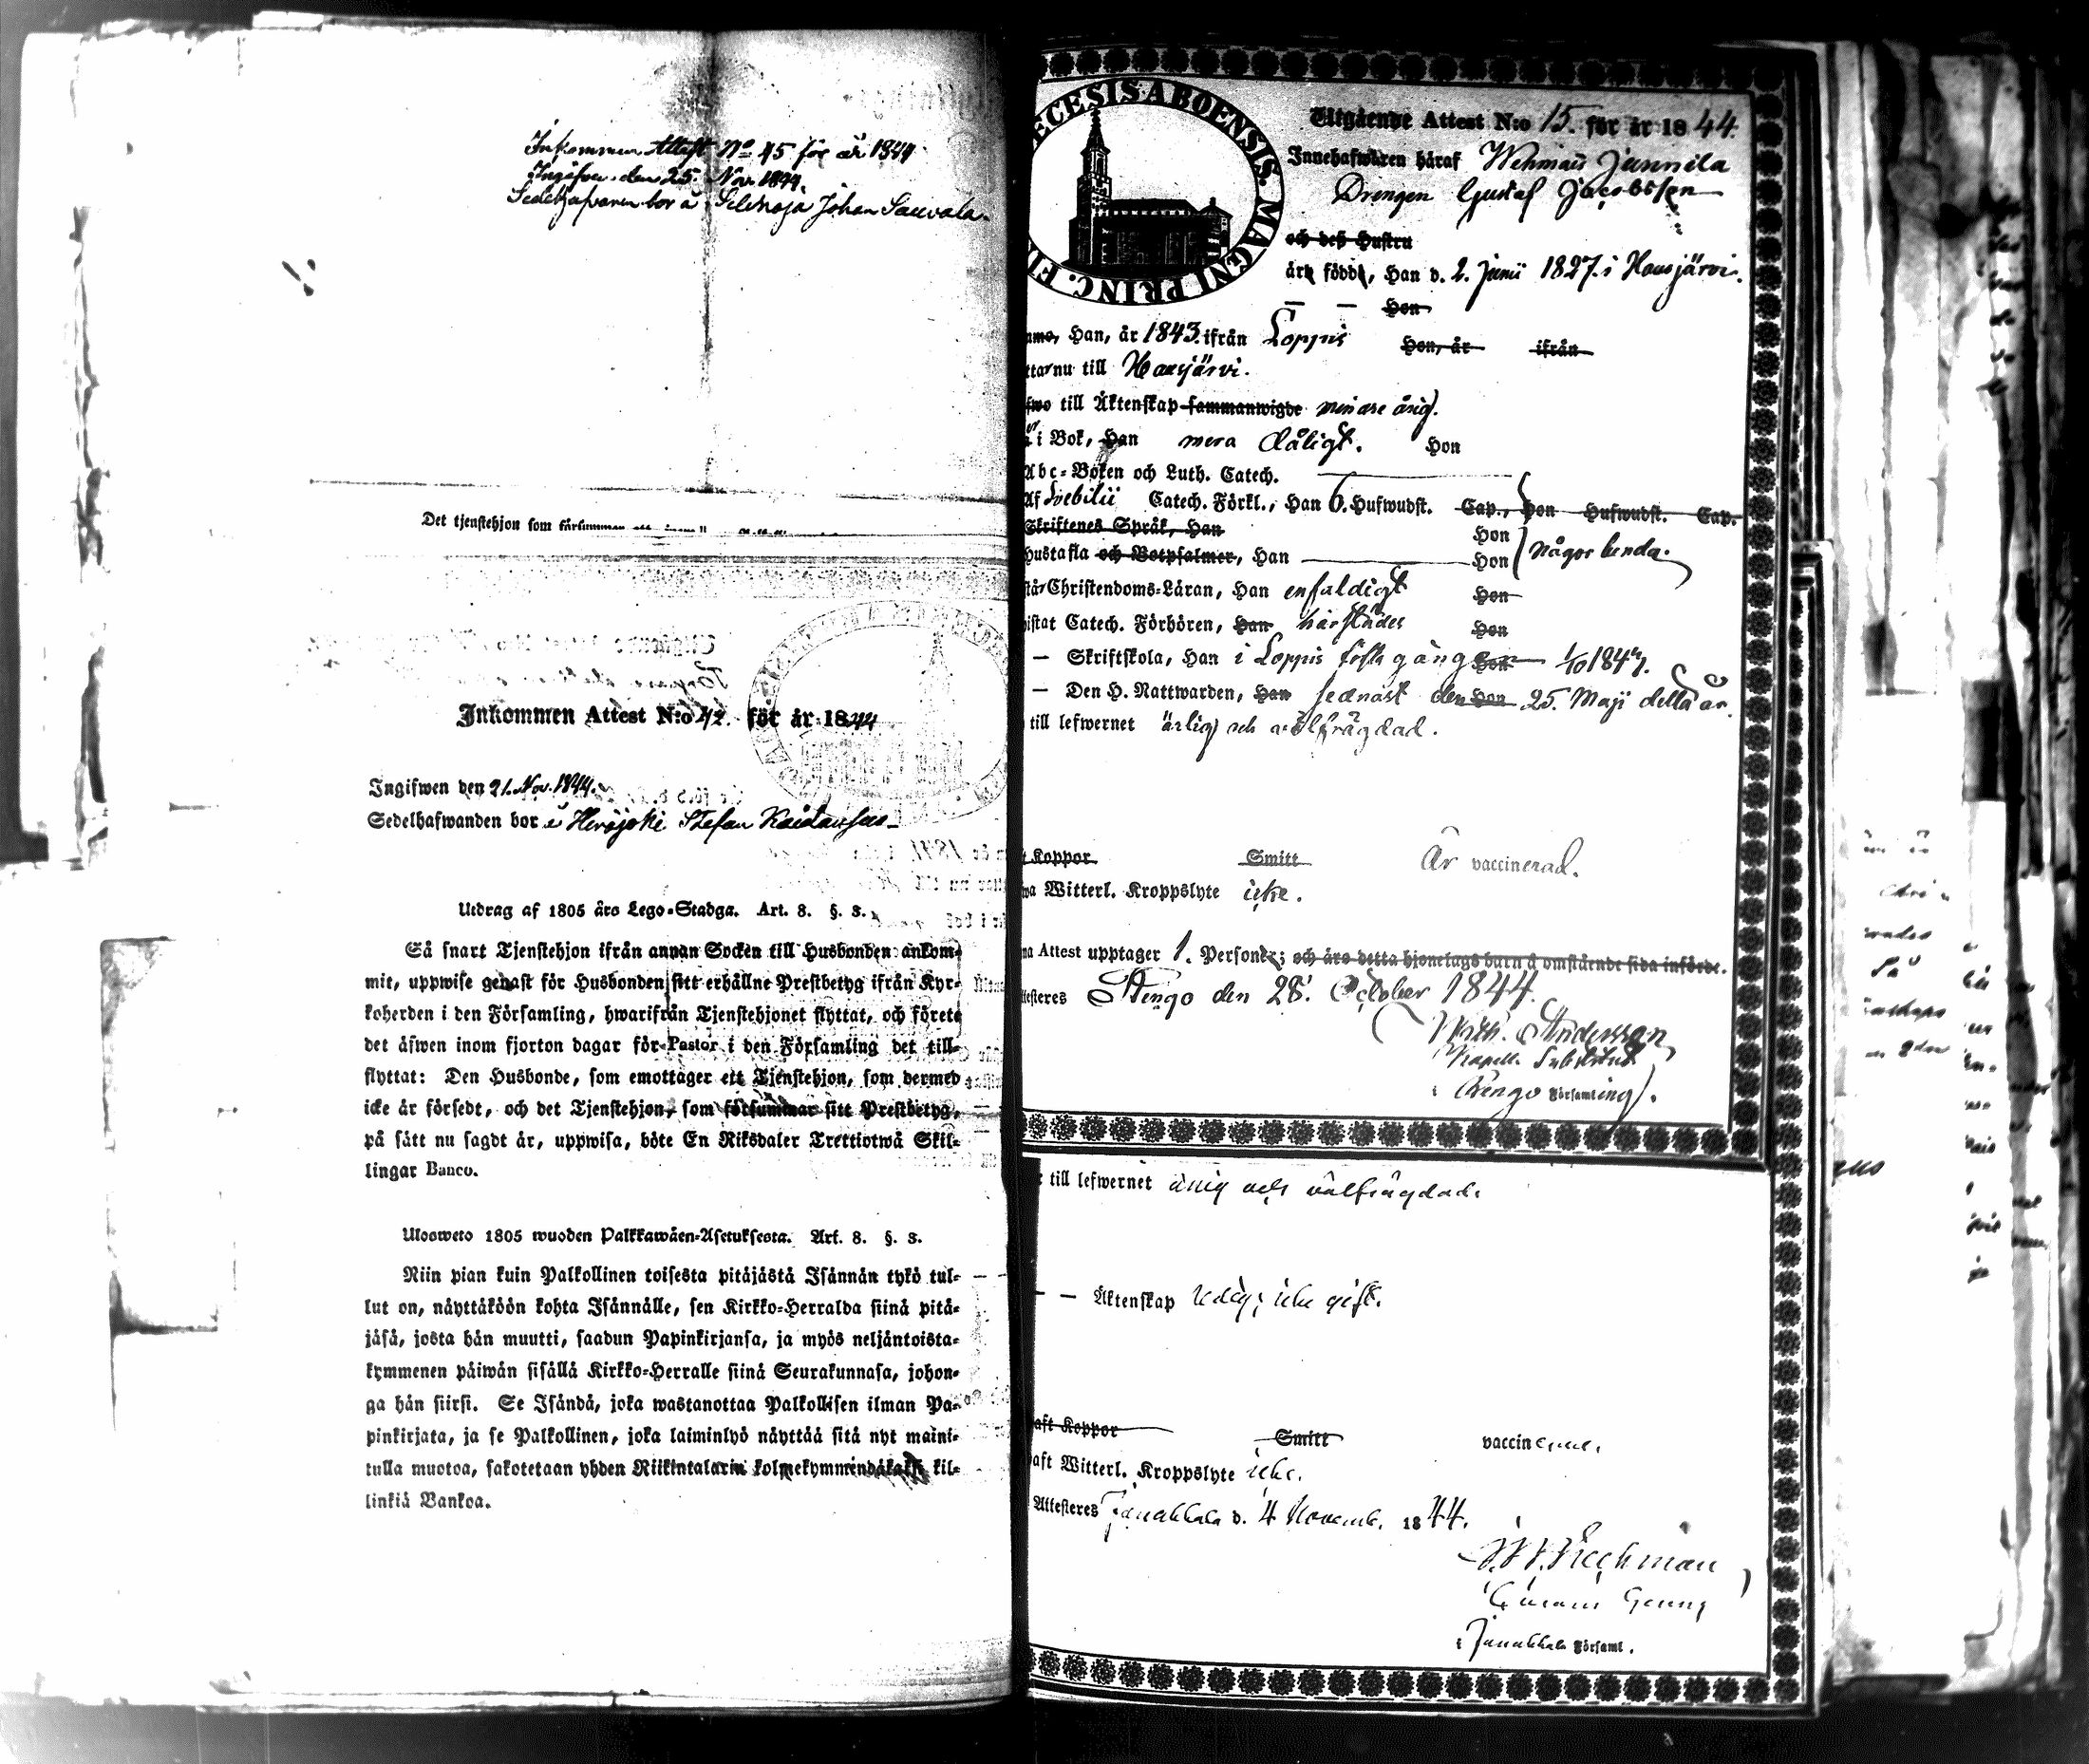 Inkommen Attest No 45 för år 1844
Ingifven den 25. Nov. 1844.
Sedelhafvaren bor å Selänoja Johan Sauvala
Det tjenstehjon som försummar att inom
Inkommen Attest N:o 42. för år 1844
Ingifwen den 21. Nov. 1844.
Sedelhafwanden bor i Herajoki Stefan
Utdrag af 1805 års Lego-Stadga. Art. 8. §. 3.
Så snart Tjenstehjon ifrån annan Socken till Husbonden ankom-
mit, uppwise genast för Husbonden sitt erhållne Prestbetyg ifrån Kyr-
koherden i den Församling, hwarifrån Tjenstehjonet flyttat, och förete
det äfwen inom fjorton dagar för Pastor i den Församling det till-
flyttat: Den Husbonde, som emottager ett Tjenstehjon, som dermed
icke är försedt, och det Tjenstehjon, som försummar sitt Prestbetyg,
på sätt nu sagdt är, uppwisa, böte En Riksdaler Trettiotwå Skil-
lingar Banco.
Ulosweto 1805 wuoden Palkkawäen-Asetuksesta. Art. 8. §. 3.
Niin pian kuin Palkollinen toisesta pitäjästä Isännän tykö tul-
lut on, näyttäköön kohta Isännälle, sen Kirkko-Herralda siinä pitä-
jäsä, josta hän muutti, saadun Papinkirjansa, ja myös neljäntoista-
kymmenen päiwän sisällä Kirkko-Herralle siinä Seurakunnasa, johon-
ga hän siirsi. Se Isändä, joka wastanottaa Palkollisen ilman Pa-
pinkirjata, ja se Palkollinen, joka laiminlyö näyttää sitä nyt maini-
tulla muotoa, sakotetaan yhden Riikintalarin kolmekymmendäkaksi kil-
linkiä Bankoa.
ECESIS ABOENSIS. MAGNI PRINC. FI
Utgående Attest N:o 15. för år 1844.
Innehafwaren häraf Wehmais Junnila
Drengen Gustaf Jacobsson
och deß Hustru
äro födde, Han d. 2. Junii 1827 i Hausjärvi.
— — Hon
Han, år 1843. ifrån Loppis Hon, år ifrån
nu till Hausjärvi.
till Äktenskap sammanwigde minore årig.
i Bok, Han mera dåligt. Hon
Abc-Boken och Luth. Catech.
Af Svebilii Catech. Förkl., Han 6. Hufwudst. Cap., Hon Hufwudst. Cap.
Skriftenes Språk, Han Hon
Hustafla och Botpsalmer, Han Hon någorlunda.
Christendoms-Läran, Han enfaldigt Hon
Catech. Förhören, Han härstädes Hon
— Skriftskola, Han i Loppis första gången Hon 1/10 1843.
— Den H. Nattwarden, Han sednast den Hon 25. Maji detta år.
till lefwernet ärlig och välfrägdad.
Koppor Smitt Är vaccinerad.
Witterl. Kroppslyte icke.
Attest upptager 1. Person; och äro detta hjonelags barn å omstående sida införde.
Rengo den 28. October 1844.
Andersson
Kapell. Substitut
i Rengo Församling.
till lefwernet ärlig och välfrägdad.
— — Äktenskap ledig; icke gift.
haft Koppor Smitt vaccinerad.
haft Witterl. Kroppslyte icke.
Attesteres Janakkala d. 4 Novemb. 1844.
i Janakkala Församl.